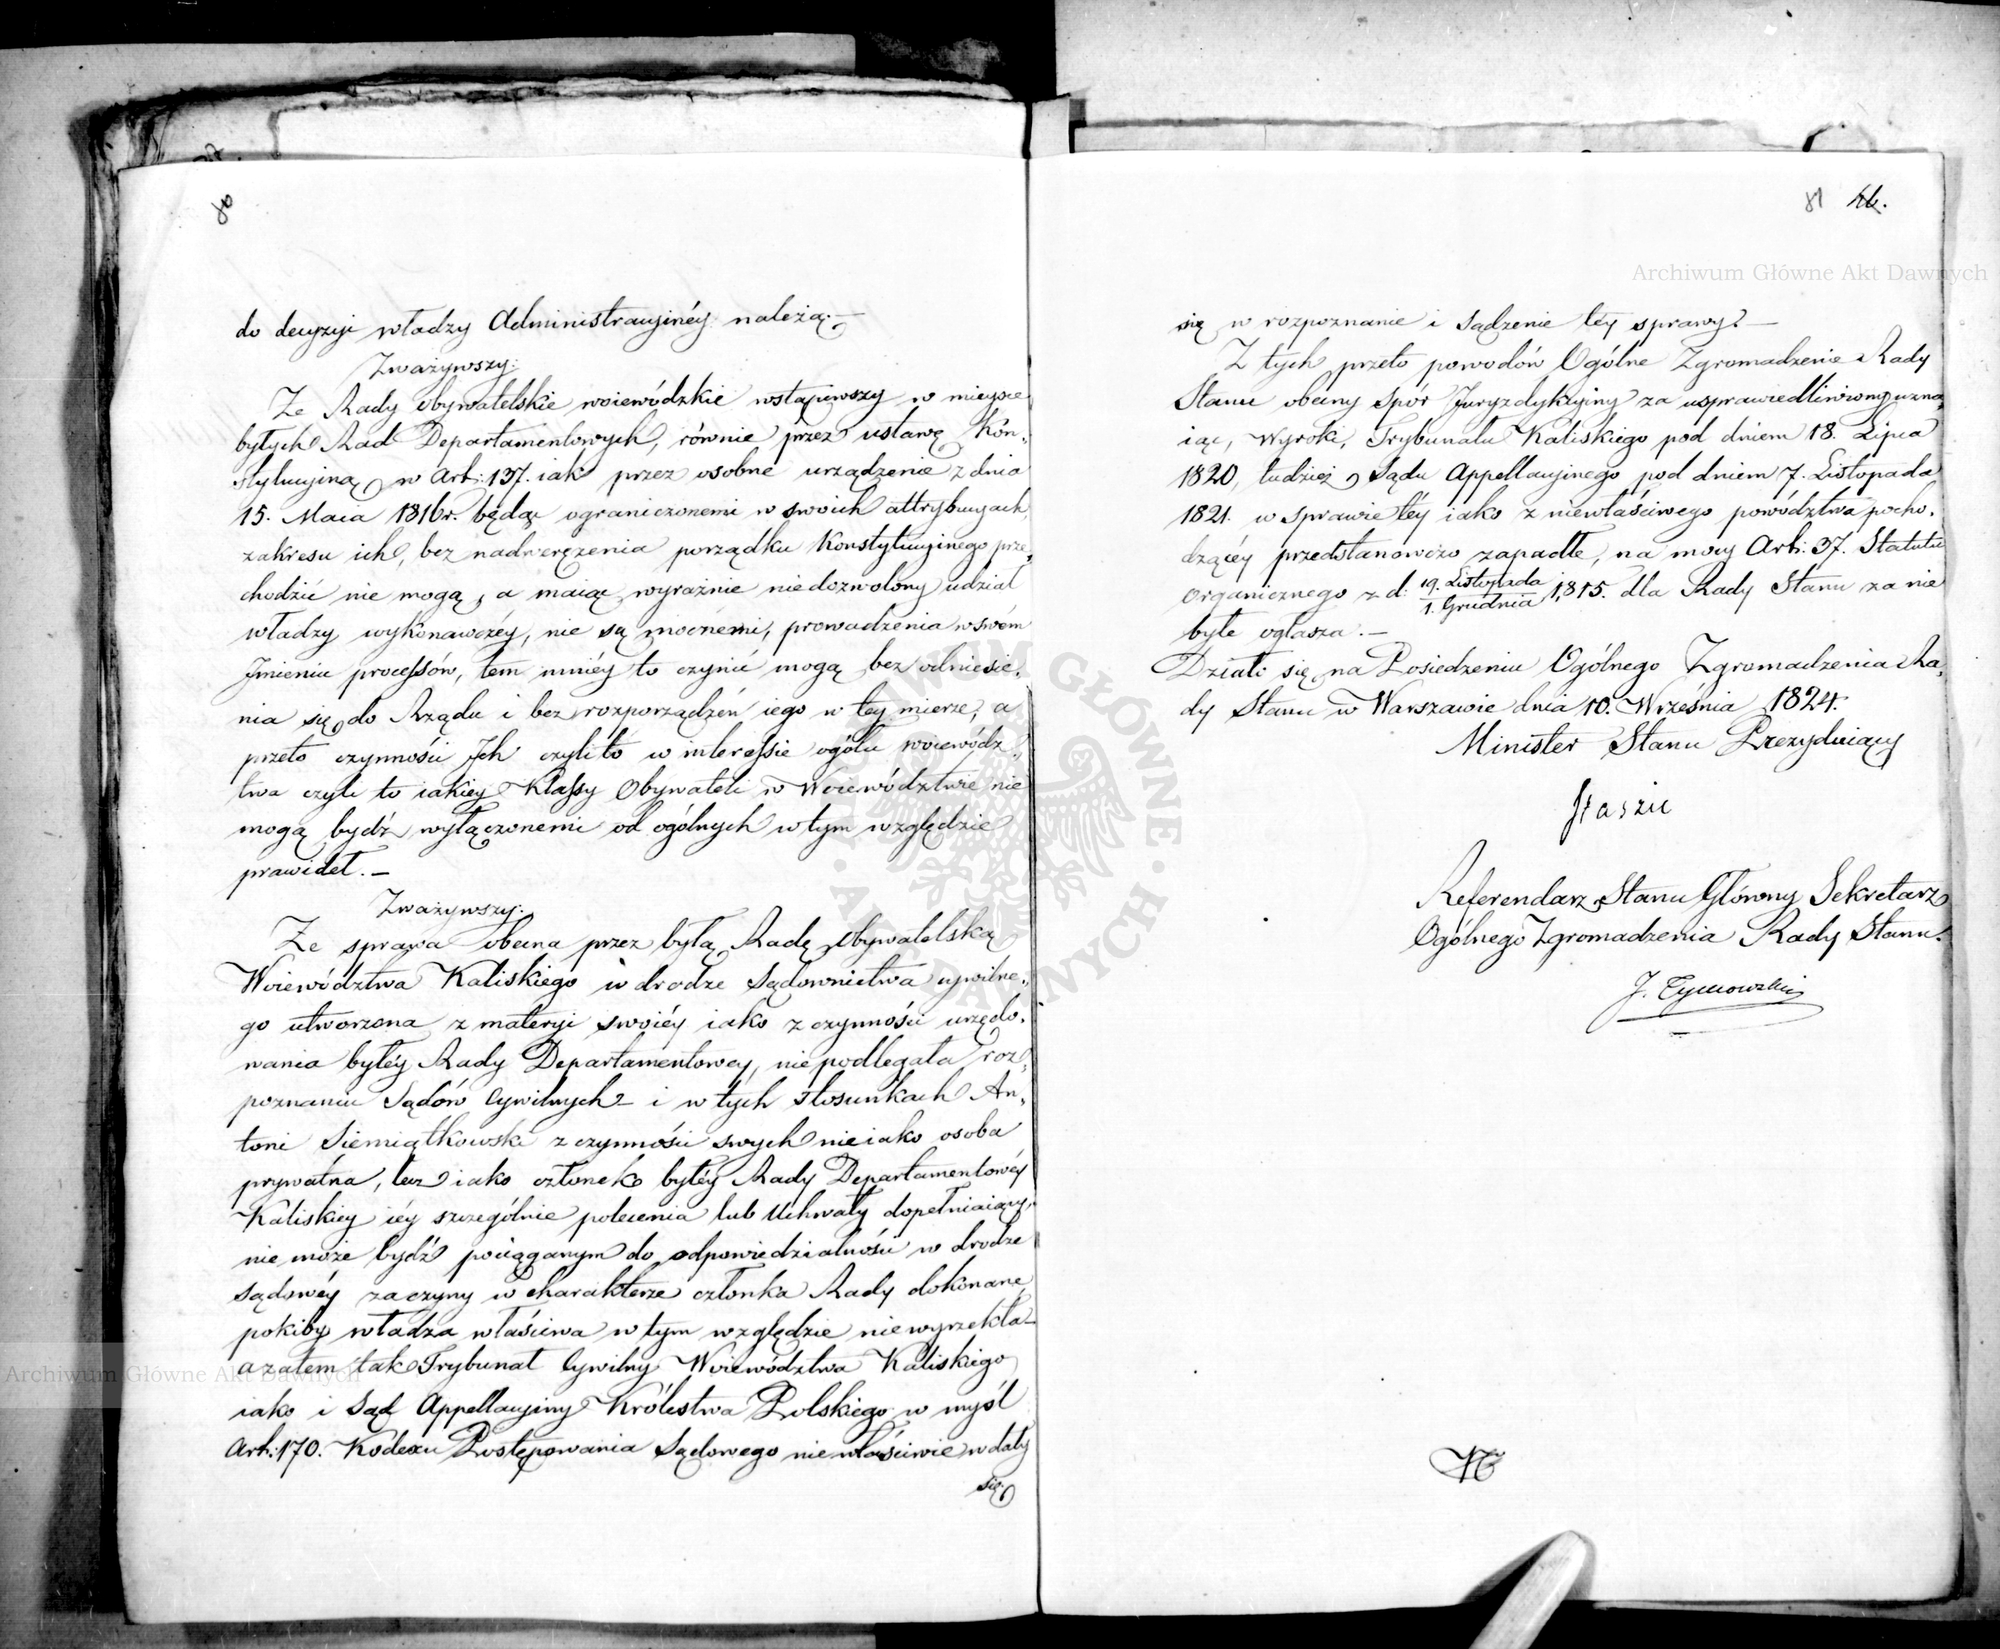 80
do decyzyi władzy Administracyinéy należą.—
Zważywszy:
Ze Rady obywatelskie woiewódzkie wstąpiwszy w mieysce
byłych Rad Departamentowych, równie przez ustawę Kon„
stytucyiną w Art: 137. iak przez osobne urządzenie z dnia
15. Maia 1816r. będąc ograniczonemi w swoich attrybucyach,
zakresu ich, bez nadwerężenia porządku Konstytucyinego prze„
chodzić nie mogą, a maiąc wyraźnie niedozwolony udział
władzy wykonawczéy, nie są mocnemi, prowadzenia w swém
Jmieniu processów, tem mniéy to czynić mogą bez odniesie„
nia się do Rządu i bez rozporządzeń iego w tey mierze, a
przeto czynności Jch czyli to w interessie ogółu woiewódz„
twa czyli to iakiey Klassy Obywateli w Woiewództwie nie
mogą bydź wyłączonemi od ogólnych w tym względzie
prawideł.—
Zważywszy:
Ze sprawa obecna przez byłą Radę Obywatelską
Woiewództwa Kaliskiego w drodze Sądownictwa cywilne„
go utworzona z materyi swoiéy iako z czynności urzędo„
wania byłéy Rady Departamentowey, niepodlegała roz„
poznaniu Sądów Cywilnych – i w tych stosunkach An„
toni Siemiątkowski z czynności swych nie iako osoba
prywatna, lecz iako członek byłéy Rady Departamentowéy
Kaliskiey iéy szczególnie polecenia lub Uchwały dopełniaiący,
nie może bydź pociąganym do odpowiedzialności w drodze
sądowéy za czyny w charakterze członka Rady dokonane,
pokiby władza właściwa w tym względzie niewyrzekła—
a zatem tak Trybunał Cywilny Woiewództwa Kaliskiego
iako i Sąd Appellacyiny Królestwa Polskiego w myśl
Art: 170. Kodexu Postępowania Sądowego niewłaściwie wdały
się
81
się w rozpoznanie i sądzenie téy sprawy.—
Z tych przeto powodów Ogólne Zgromadzenie Rady
Stanu obecny Spór Juryzdykcyiny za usprawiedliwiony uzna„
iąc, Wyroki, Trybunału Kaliskiego pod dniem 18. Lipca
1820, tudzież Sądu Appellacyinego pod dniem 7. Listopada
1821. w sprawie téy iako z niewłaściwego powództwa pocho„
dzącéy przedstanowczo zapadłe, na mocy Art: 37. Statutu
Organicznego z d: 19. Listopada / 1. Grudnia 1815. dla Rady Stanu za nie
byłe ogłasza.—
Działo się na Posiedzeniu Ogólnego Zgromadzenia Ra„
dy Stanu w Warszawie dnia 10. Września 1824.
Minister Stanu Prezyduiący
Staszic
Referendarz Stanu Główny Sekretarz
Ogólnego Zgromadzenia Rady Stanu.
J. Tymowski
Archiwum Główne Akt Dawnych
Archiwum Główne Akt Dawnych
ARCHIWUM GŁÓWNE AKT DAWNYCH